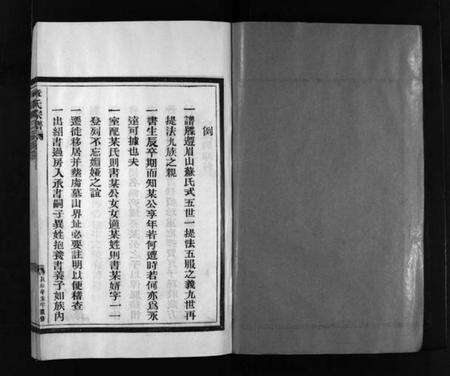 例
一譜牒遵眉山蘇氏式五世一提法五服之義九世再
提法九族之親
一書生辰卒期而知某公享年若何遭時若何亦為永
遠可據也夫
一室配某氏則書某公女女適某姓則書某婿字一一
登列不忘姻婭之誼
一遷徙移居并塋處墓山界址必要註明以便稽查
一出紹書過房入承書嗣子異姓抱養書養子如族內